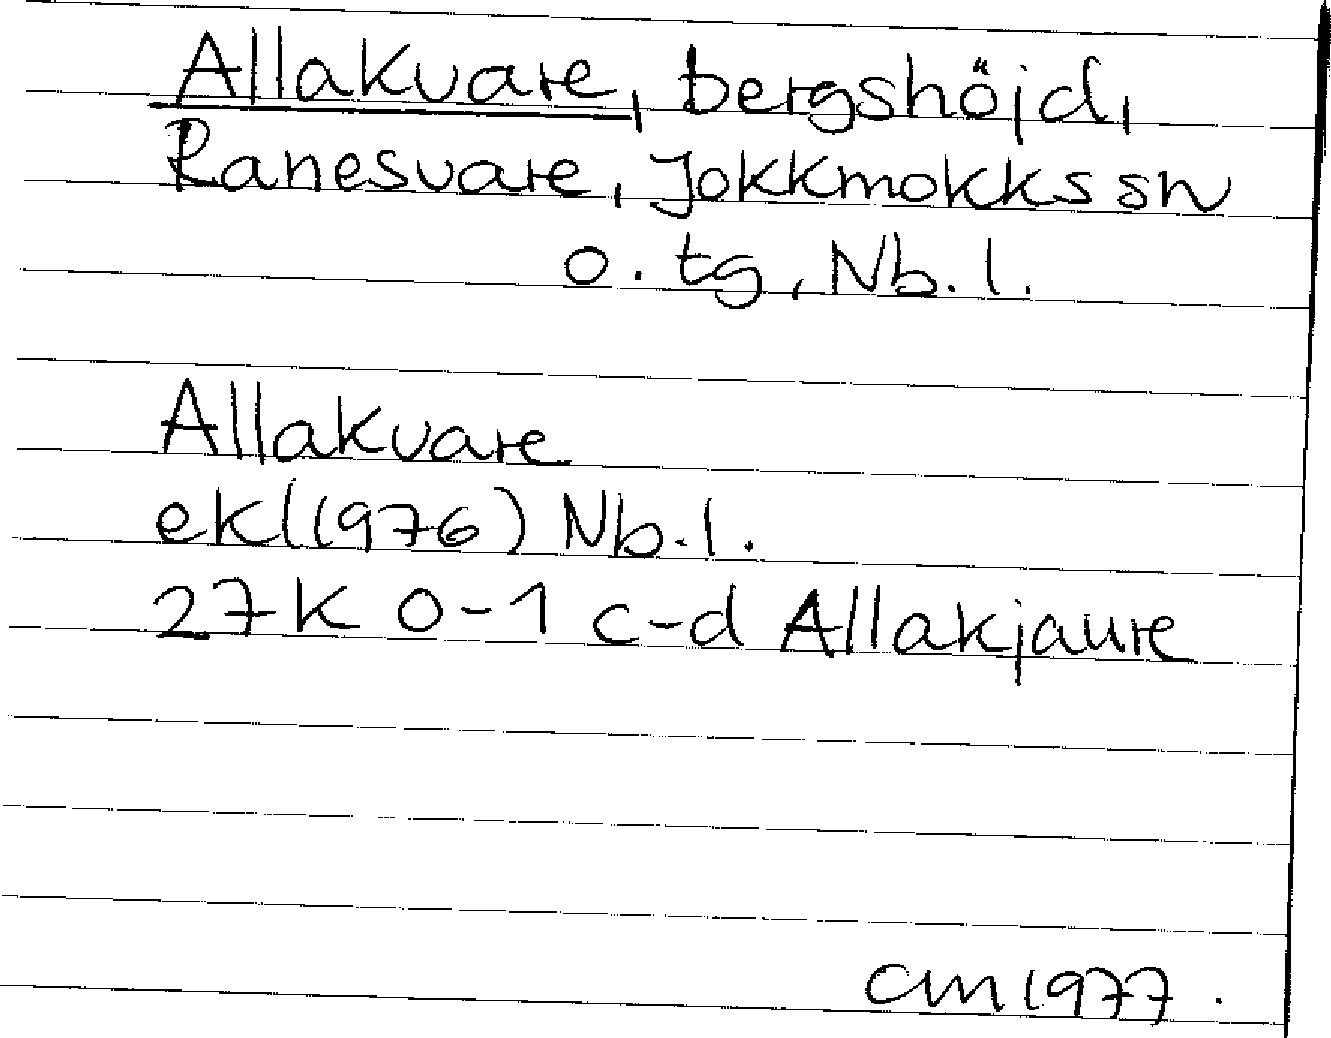 Allakvare, bergshöjd,
Ranesvare, Jokkmokks sn
o. tg, Nb. l.
Allakvare
ekl(1976) Nb. l.
27K 0-1 c-d Allakjaure
CM 1977.